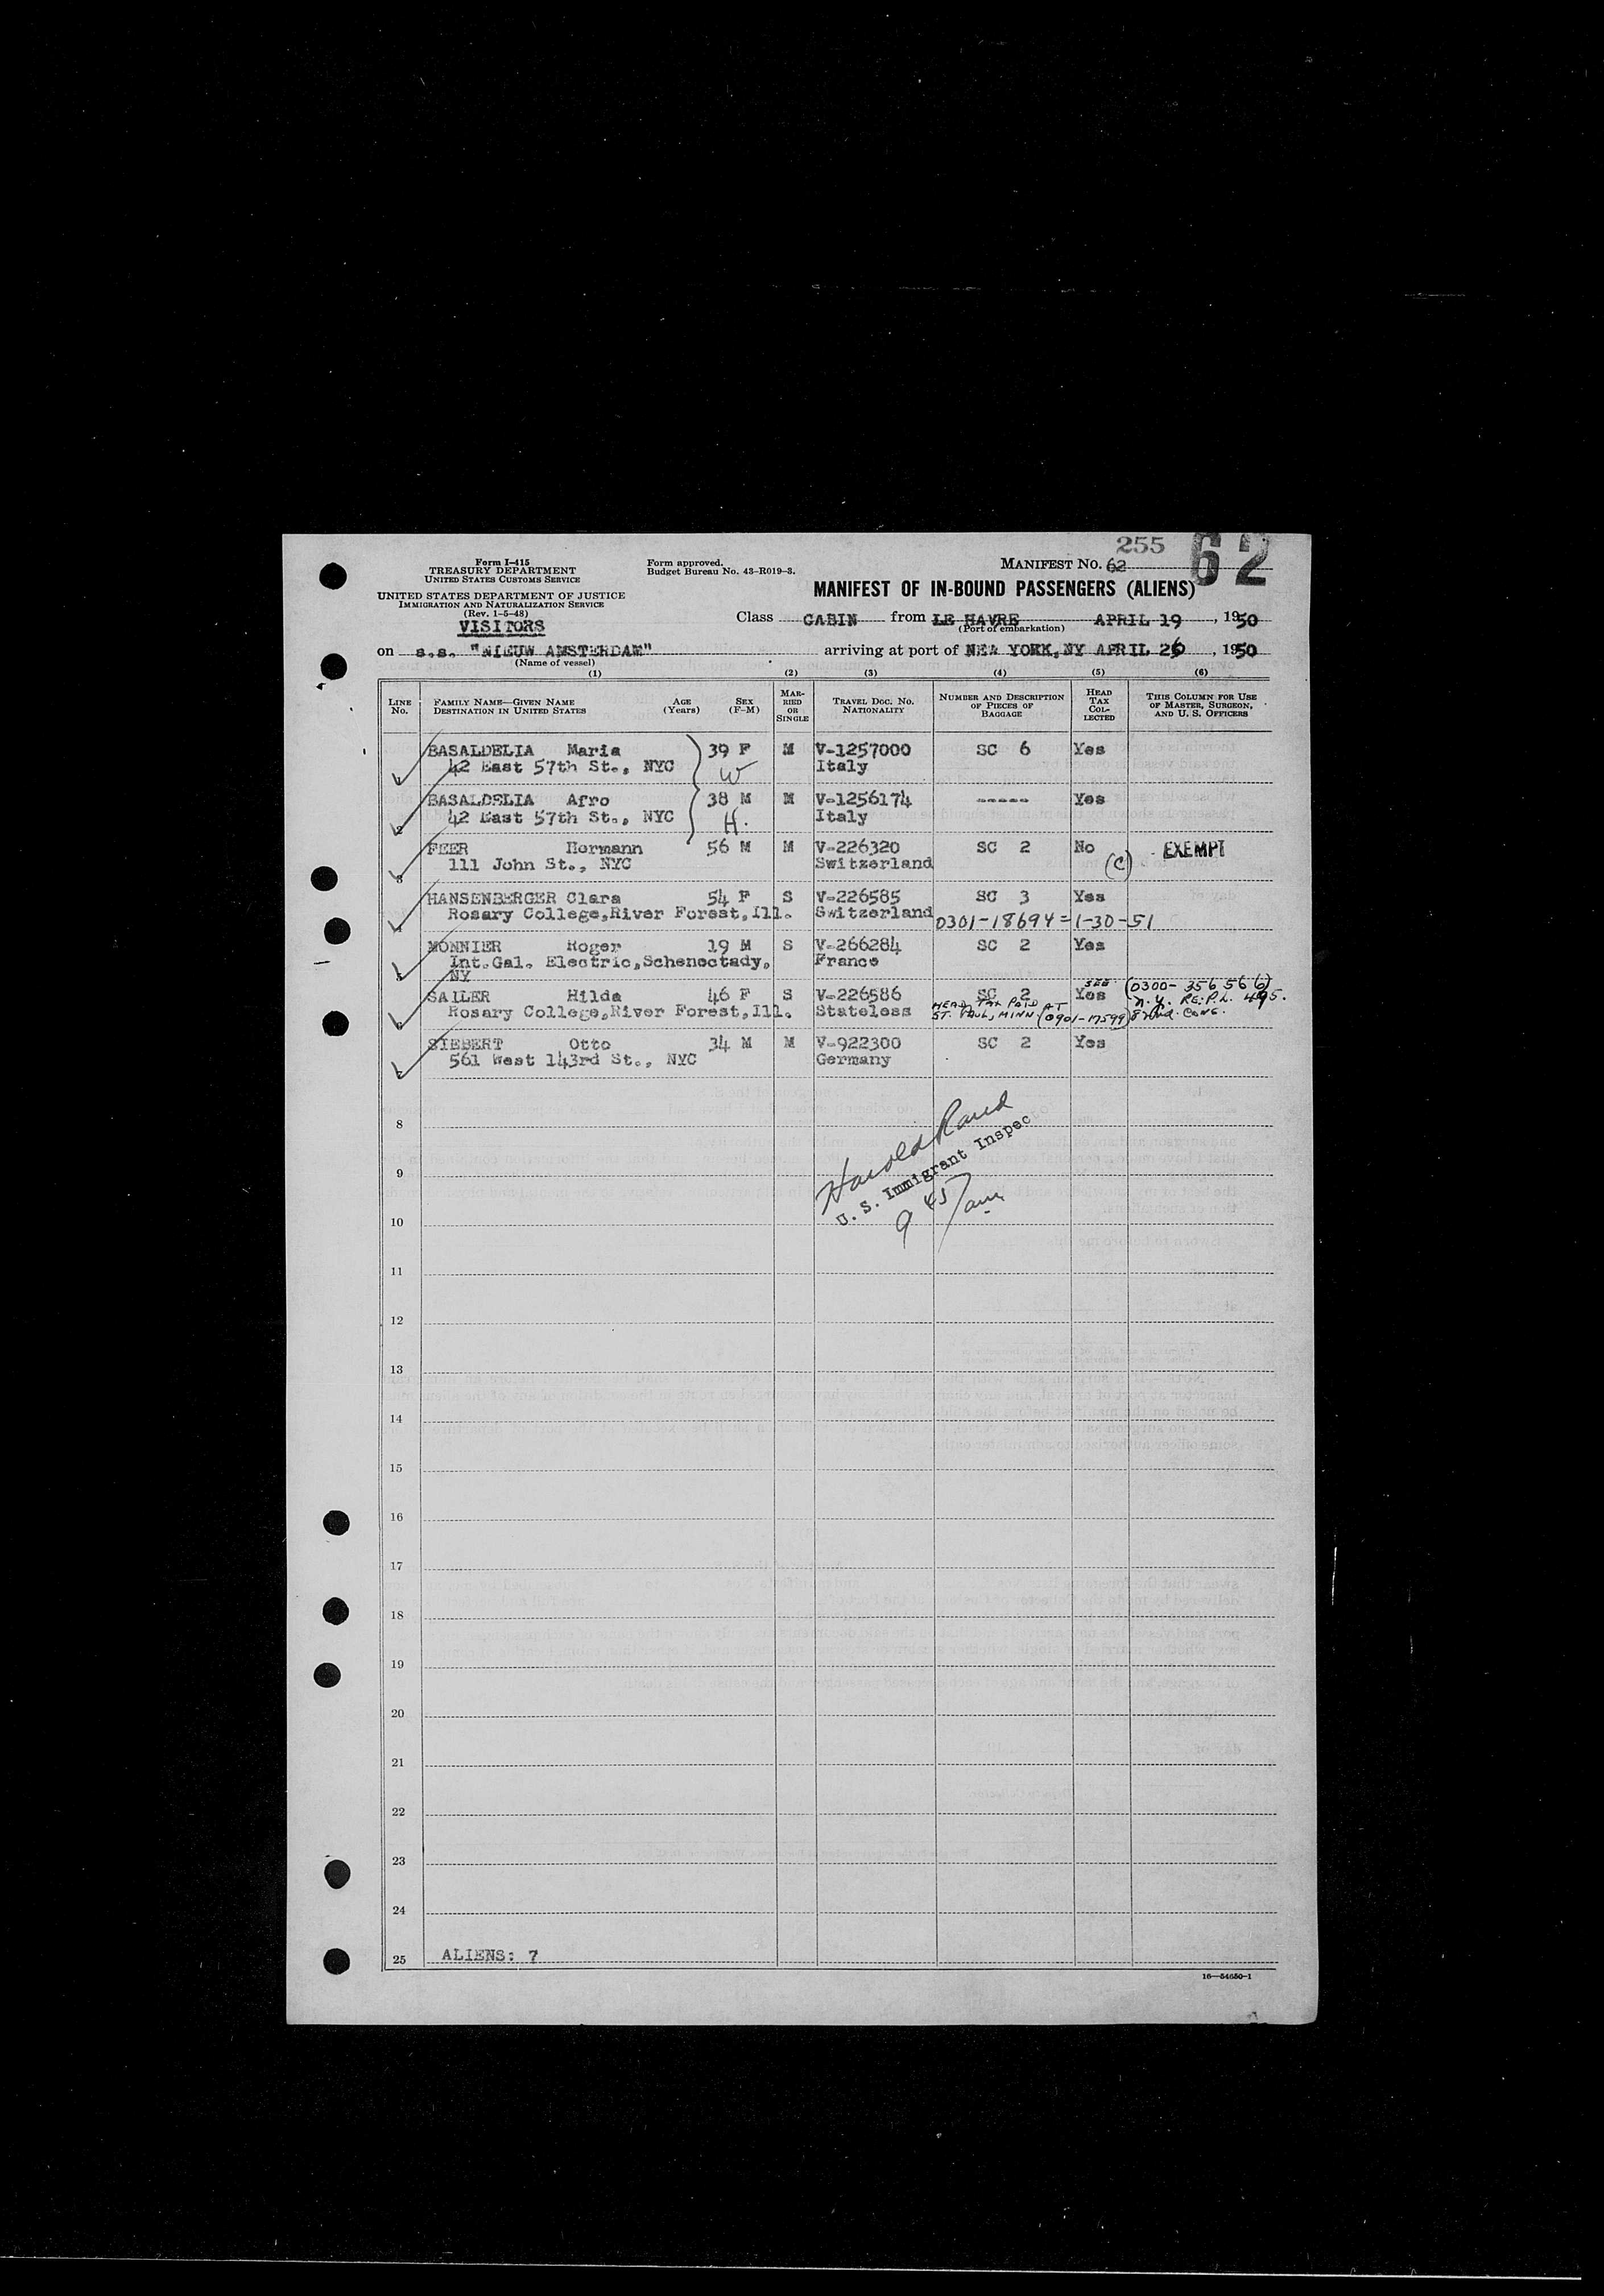 255
62
Form I-415
TREASURY DEPARTMENT
UNITED STATES CUSTOMS SERVICE
UNITED STATES DEPARTMENT OF JUSTICE
IMMIGRATION AND NATURALIZATION SERVICE
(Rev. 1-5-48)
VISITORS
Form approved.
Budget Bureau No. 43-R019-3.
MANIFEST No. 62
MANIFEST OF IN-BOUND PASSENGERS (ALIENS)
Class CABIN from LE HAVRE APRIL 19, 1950
(Port of embarkation)
on s.s. "NIEUW AMSTERDAM" arriving at port of NEW YORK, NY APRIL 26, 1950
(Name of vessel)
(1) (2) (3) (4) (5) (6)
LINE No. FAMILY NAME—GIVEN NAME DESTINATION IN UNITED STATES AGE (Years) SEX (F-M) MARRIED OR SINGLE TRAVEL DOC. NO. NATIONALITY NUMBER AND DESCRIPTION OF PIECES OF BAGGAGE HEAD TAX COLLECTED THIS COLUMN FOR USE OF MASTER, SURGEON, AND U. S. OFFICERS
BASALDELIA Maria 39 F M V-1257000 SC 6 Yes
1 42 East 57th St., NYC W Italy
BASALDELIA Afro 38 M M V-1256174 ----- Yes
2 42 East 57th St., NYC H. Italy
FEER Hormann 56 M M V-226320 SC 2 No (C) EXEMPT
3 111 John St., NYC Switzerland
HANSENBERGER Clara 54 F S V-226585 SC 3 Yes
4 Rosary College,River Forest,Ill. Switzerland 0301-18694=1-30-51
MONNIER Roger 19 M S V-266284 SC 2 Yes
Int.Gal. Electric,Schenectady, France
5 NY
SAILER Hilda 46 F S V-226586 SC 2 Yes SEE (0300-356566)
6 Rosary College,River Forest,Ill. Stateless HEAD TAX PAID AT N.Y. RE: P.L. 495.
ST. PAUL, MINN. (0901-17599) 82nd. CONG.
SIEBERT Otto 34 M M V-922300 SC 2 Yes
7 561 West 143rd St., NYC Germany
8
Harold Rand
U. S. Immigrant Inspector
9 45/am
9
10
11
12
13
14
15
16
17
18
19
20
21
22
23
24
25 ALIENS: 7
16—54650-1